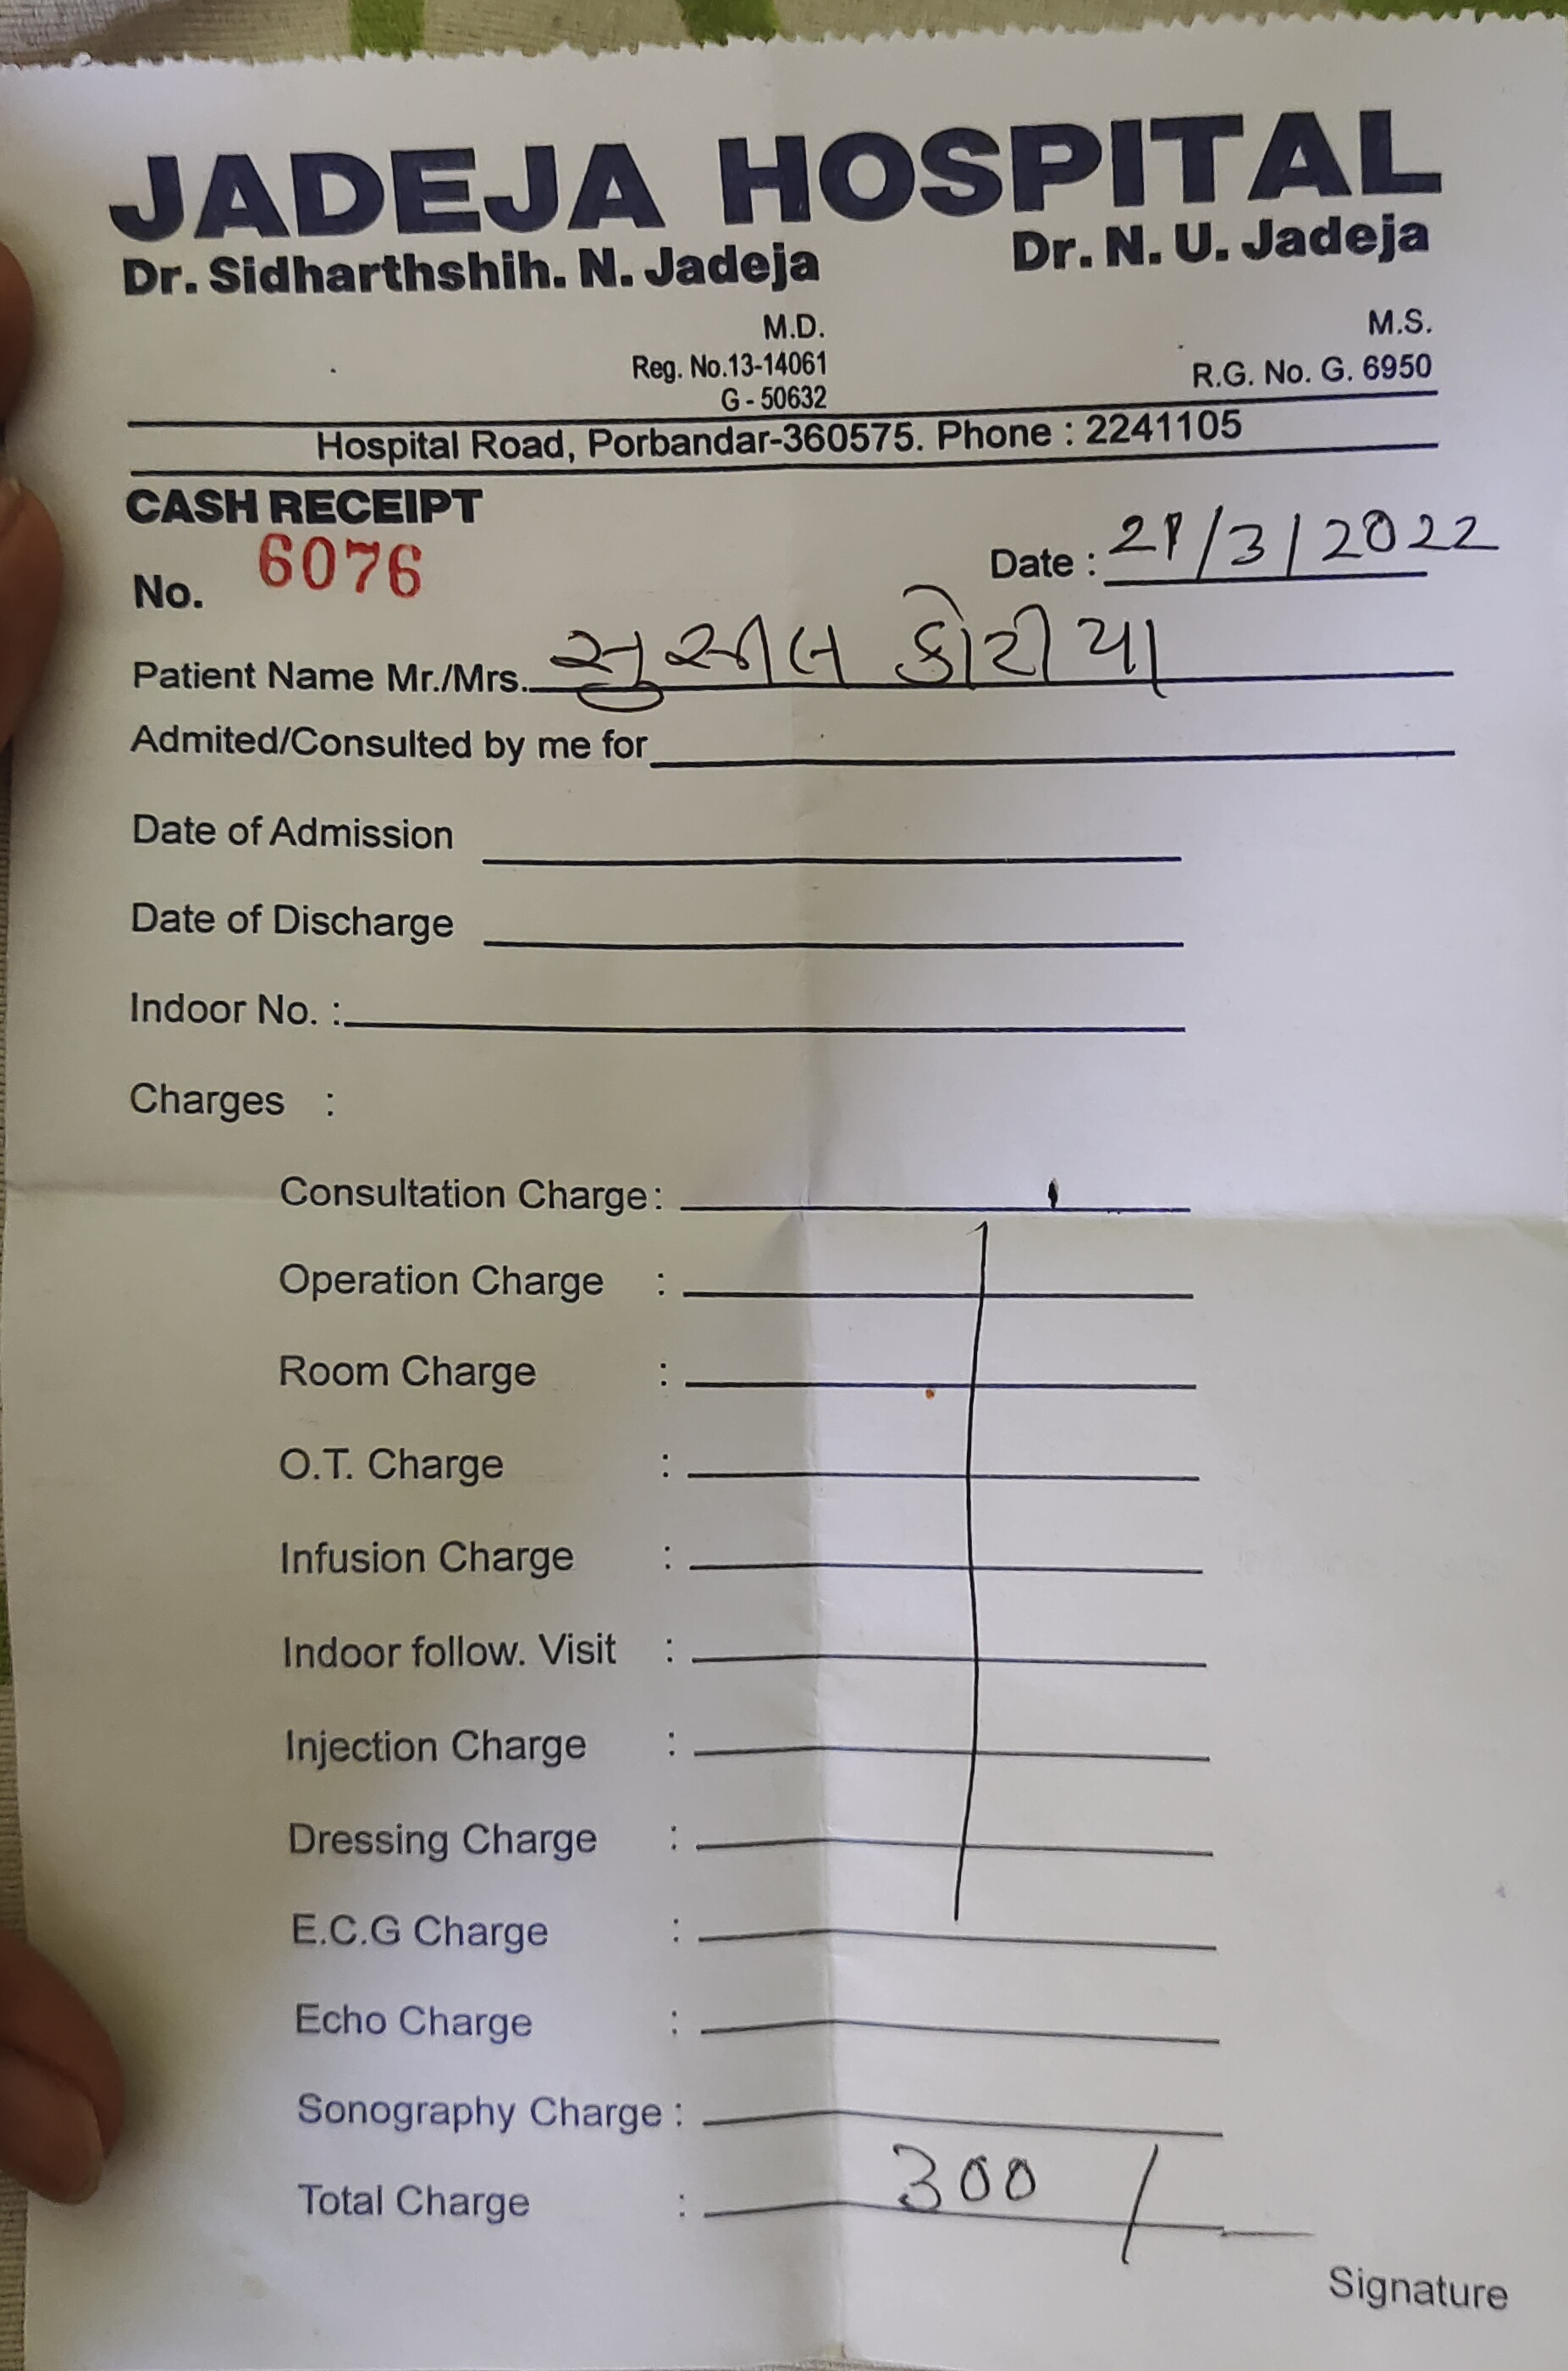 JADEJA HOSPITAL
Dr. Sidharthshih. N. Jadeja Dr. N. U. Jadeja
M.D. M.S.
Reg. No.13-14061 R.G. No. G. 6950
G - 50632
Hospital Road, Porbandar-360575. Phone : 2241105
CASH RECEIPT
No. 6076 Date : 21/3/2022
Patient Name Mr./Mrs. સુસીલ કોટીયા
Admited/Consulted by me for
Date of Admission
Date of Discharge
Indoor No. :
Charges :
Consultation Charge :
Operation Charge :
Room Charge :
O.T. Charge :
Infusion Charge :
Indoor follow. Visit :
Injection Charge :
Dressing Charge :
E.C.G Charge :
Echo Charge :
Sonography Charge :
Total Charge : 300/-
Signature